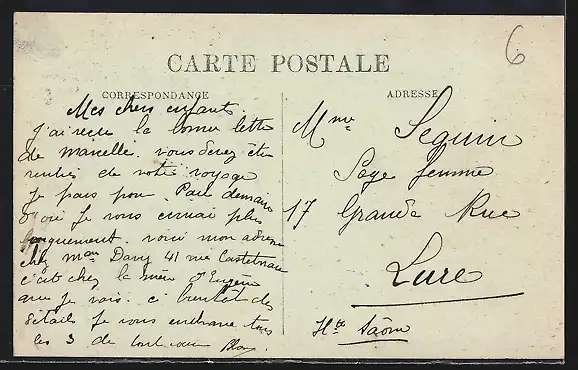 6
CARTE POSTALE
CORRESPONDANCE
ADRESSE
Mes chers enfants.
J'ai reçu la bonne lettre
de Marcelle. vous devez être
rentrés de votre voyage
Je pars pour Pau demain
d'où Je vous écrirai plus
longuement. voici mon adresse
chez Mme Davy 41 rue Castetnau
c'est chez la mère d'Eugène
que Je vais. à bientôt des
détails Je vous embrasse tous
les 3 de tout cœur
Mme Seguin
Sage femme
17 Grande Rue
Lure
Hte Saône